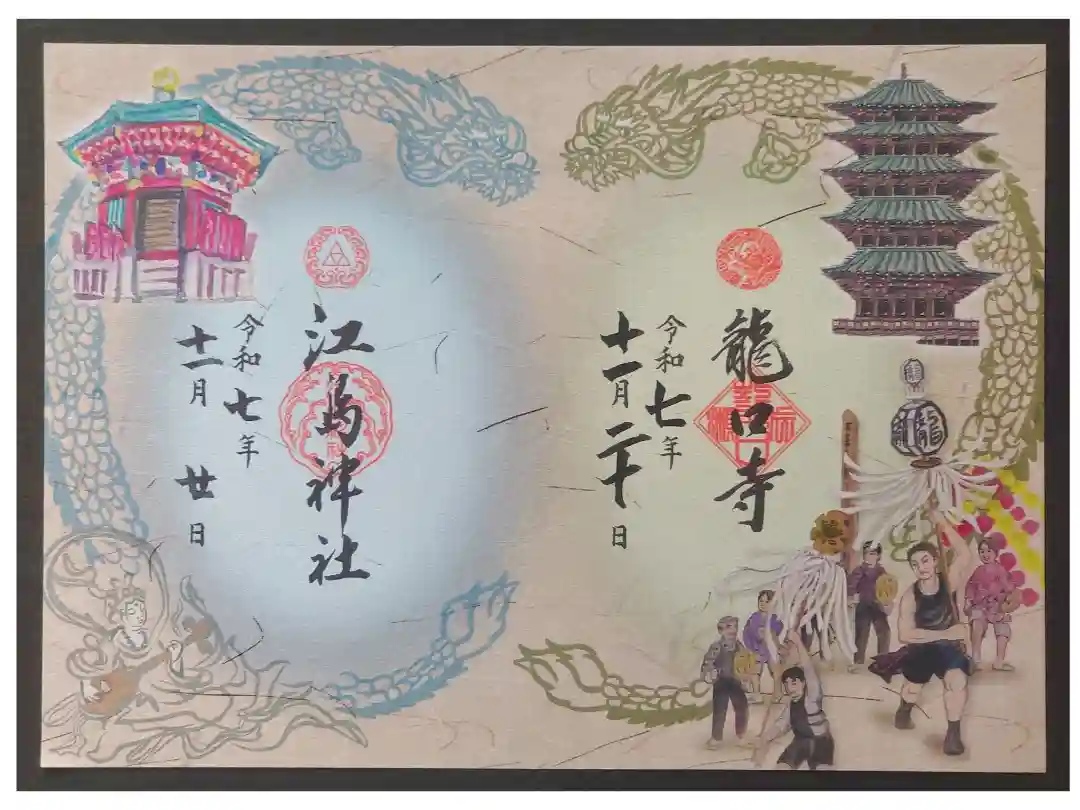 龍口寺
令和七年
十一月二十日
江島神社
令和七年
十一月廿日
龍